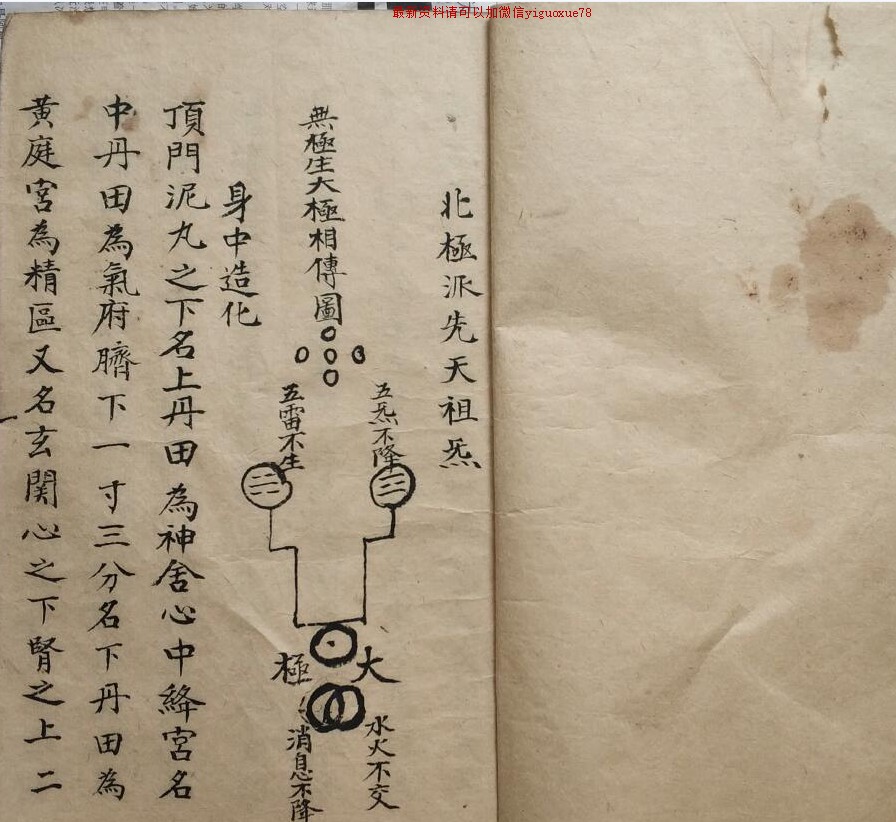 最新资料请可以加微信yiguoxue78
北極派先天祖炁
無極生大極相傳圖
五炁不降
五雷不生
大極
水火不交
消息不降
身中造化
頂門泥丸之下名上丹田為神舍心中絳宮名
中丹田為氣府臍下一寸三分名下丹田為
黃庭宮為精區又名玄関心之下腎之上二